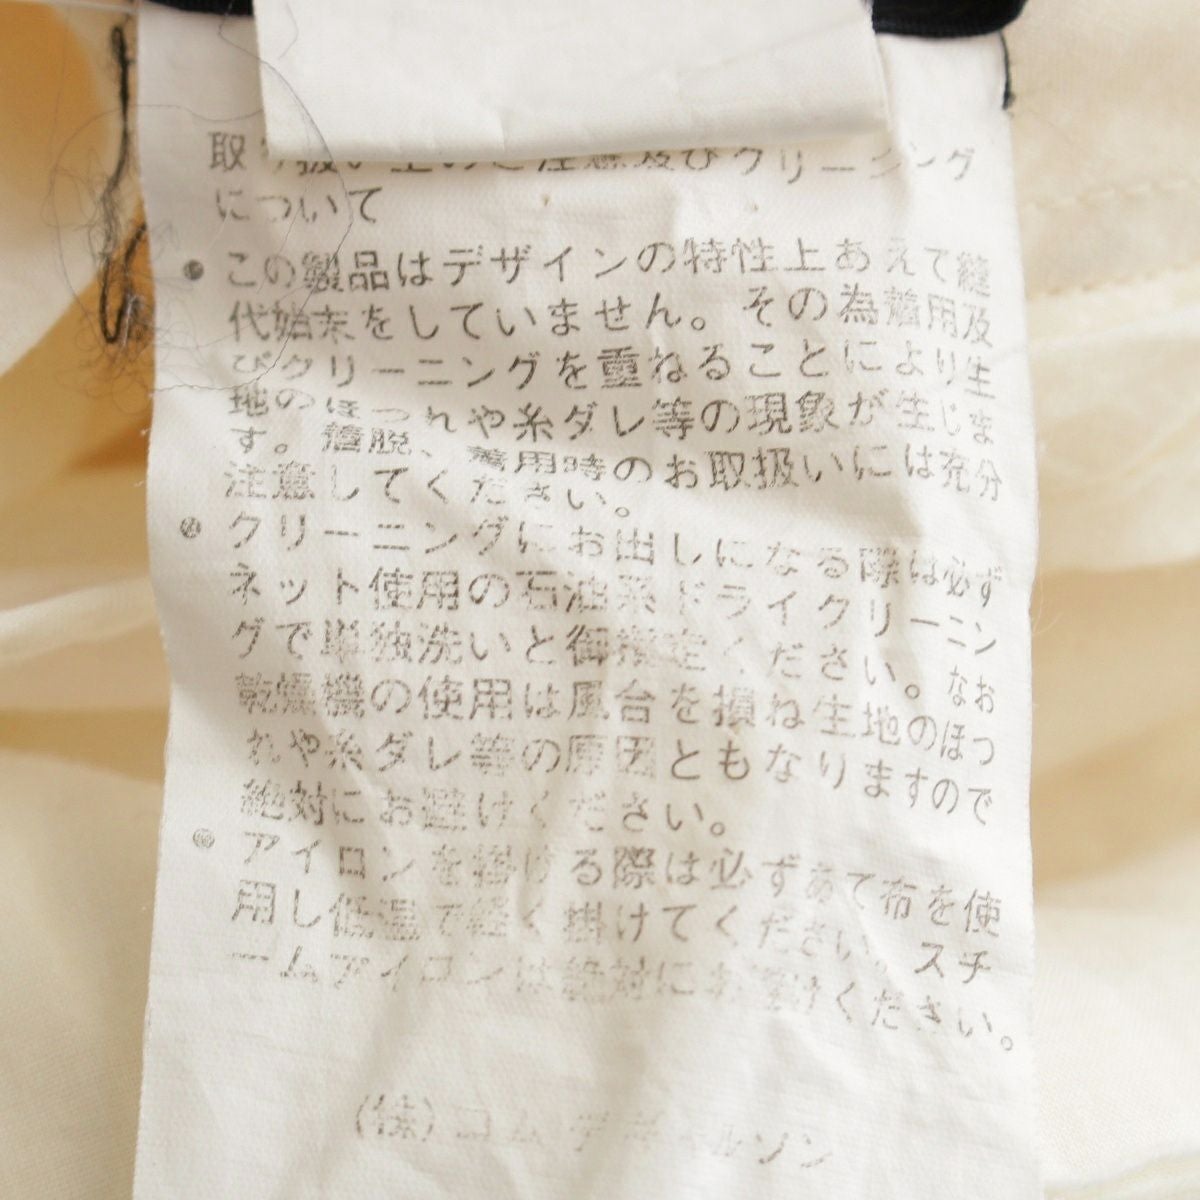 取り扱い上のご注意及びクリーニング
について
• この製品はデザインの特性上あえて縫
代始末をしていません。その為着用及
びクリーニングを重ねることにより生
地のほつれや糸ダレ等の現象が生じま
す。着脱、着用時のお取扱いには充分
注意してください。
• クリーニングにお出しになる際は必ず
ネット使用の石油系ドライクリーニン
グで単独洗いと御指定ください。なお
乾燥機の使用は風合を損ね生地のほつ
れや糸ダレ等の原因ともなりますので
絶対にお避けください。
• アイロンを掛ける際は必ずあて布を使
用し低温で軽く掛けてください。スチ
ームアイロンは絶対にお避けください。
(株)コム デ ギャルソン